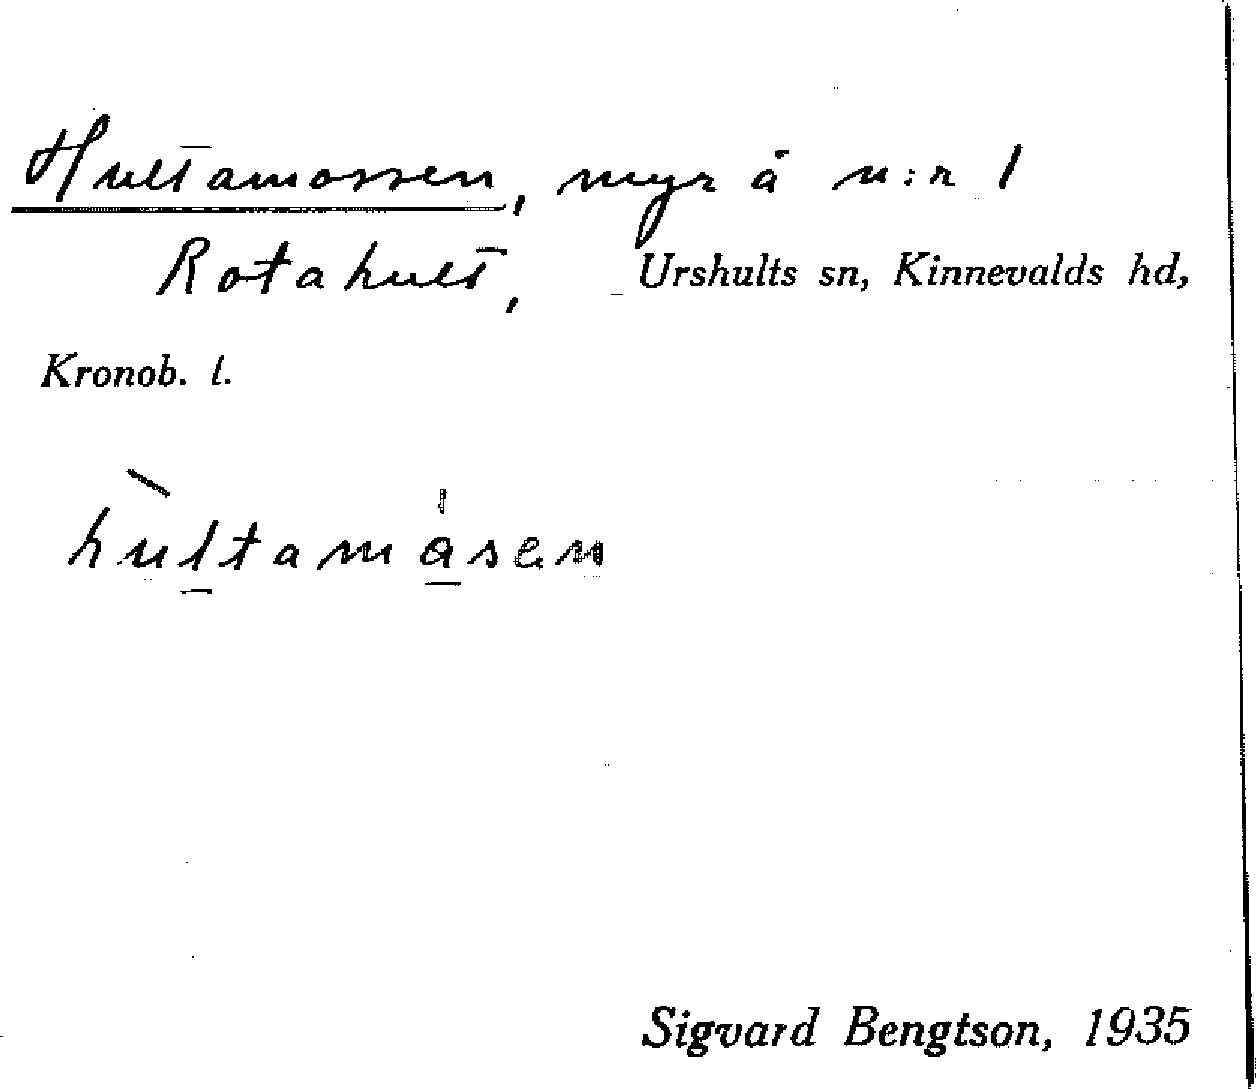 Hultamossen, myr å n:r 1
Rotahult, Urshults sn, Kinnevalds hd,
Kronob. l.
hultamåsen
Sigvard Bengtson, 1935